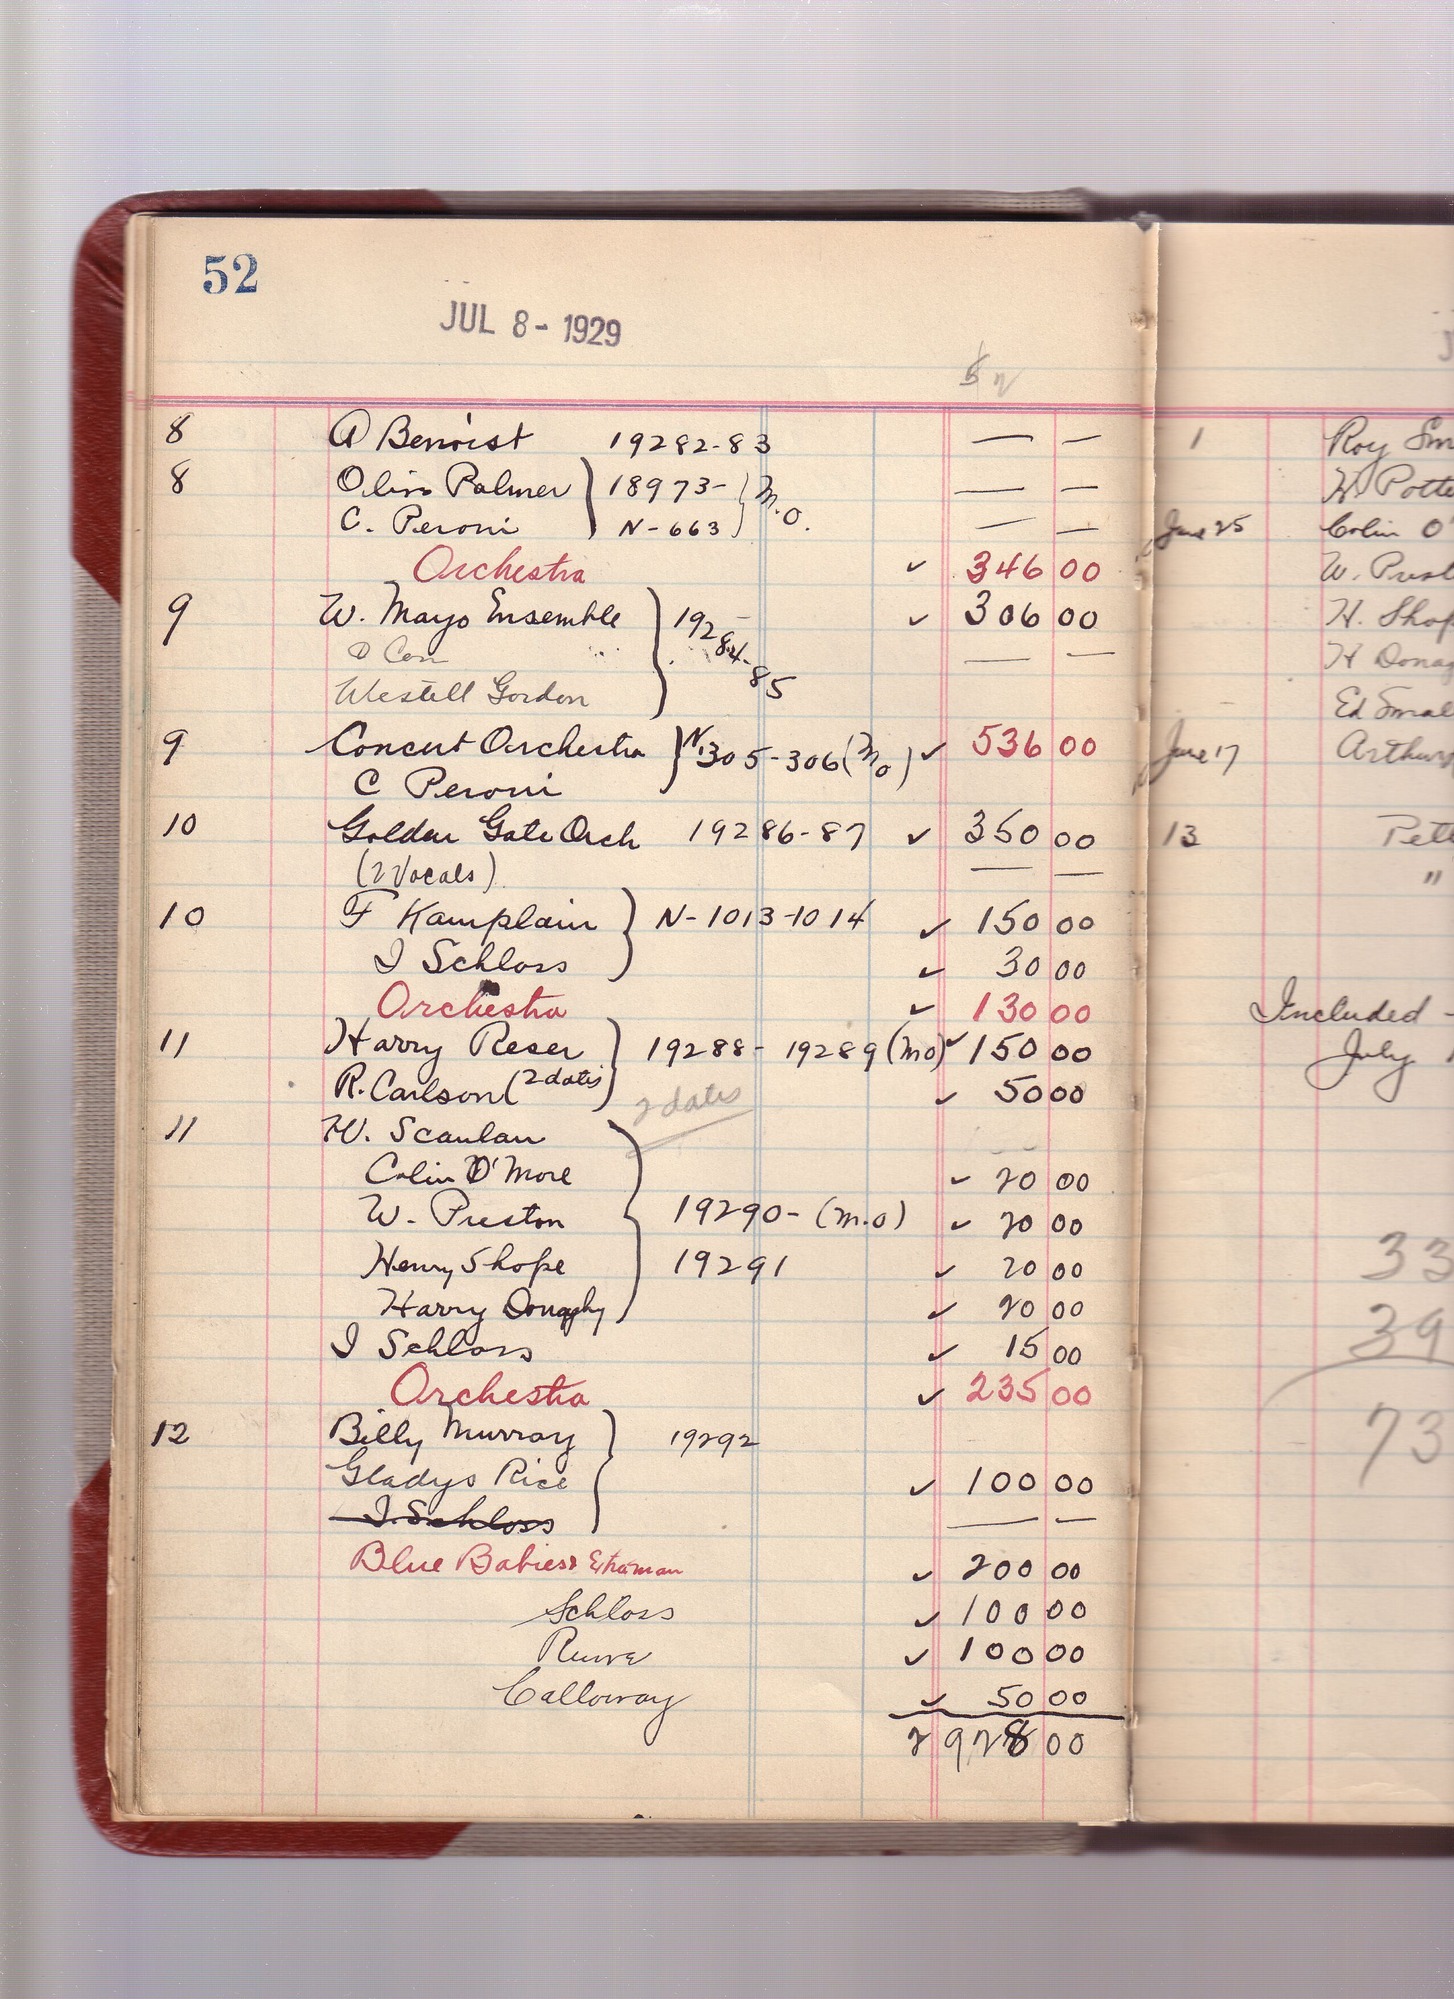 52
JUL 8 - 1929
8 A Benoist 19282-83 — —
8 Olive Palmer 18973- — —
C. Peroni N-663 M.O. — —
Orchestra ✓ 346 00
9 W. Mayo Ensemble 19284-85 ✓ 306 00
— —
Westell Gordon
9 Concert Orchestra N.305-306 (Mo) ✓ 536 00
C Peroni
10 Golden Gate Orch 19286-87 ✓ 350 00
(2 Vocals) — —
10 F Kamplain N-1013-1014 ✓ 150 00
I Schloss ✓ 30 00
Orchestra ✓ 130 00
11 Harry Reser 19288- 19289 (Mo) ✓ 150 00
R. Carlson (2 dates ✓ 50 00
2 dates
11 W. Scanlan
Colin O'More ✓ 20 00
W. Preston 19290- (M.O) ✓ 20 00
Henry Shope 19291 ✓ 20 00
Harry Donaghy ✓ 20 00
I Schloss ✓ 15 00
Orchestra ✓ 235 00
12 Billy Murray 19292
Gladys Rice ✓ 100 00
I. Schloss — —
Blue Babies & Extra man ✓ 200 00
Schloss ✓ 100 00
✓ 100 00
Calloway ✓ 50 00
2928 00
1 Roy Sm
W. Potte
June 25 Colin O'
W. Prest
H. Shop
H Donag
Ed Smal
June 17 Arthur
13 Pett
"
Included -
July 1
33
39
73